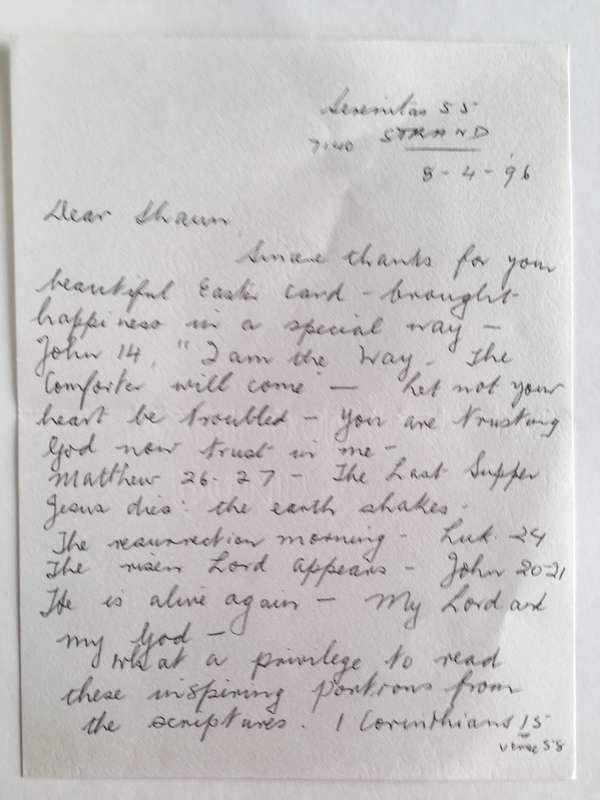 Serenitas 55
7140 STRAND
8-4-'96
Dear Shaun,
Sincere thanks for your
beautiful Easter card - brought
happiness in a special way -
John 14, "I am the Way - The
Comforter will come - Let not your
heart be troubled - you are trusting
God now trust in me -
Matthew 26-27 - The Last Supper
Jesus dies: the earth shakes -
The resurrection morning - Luk. 24
The risen Lord appears - John 20-21
He is alive again - My Lord and
my God -
What a privilege to read
these inspiring portions from
the scriptures. 1 Corinthians 15
verse 58